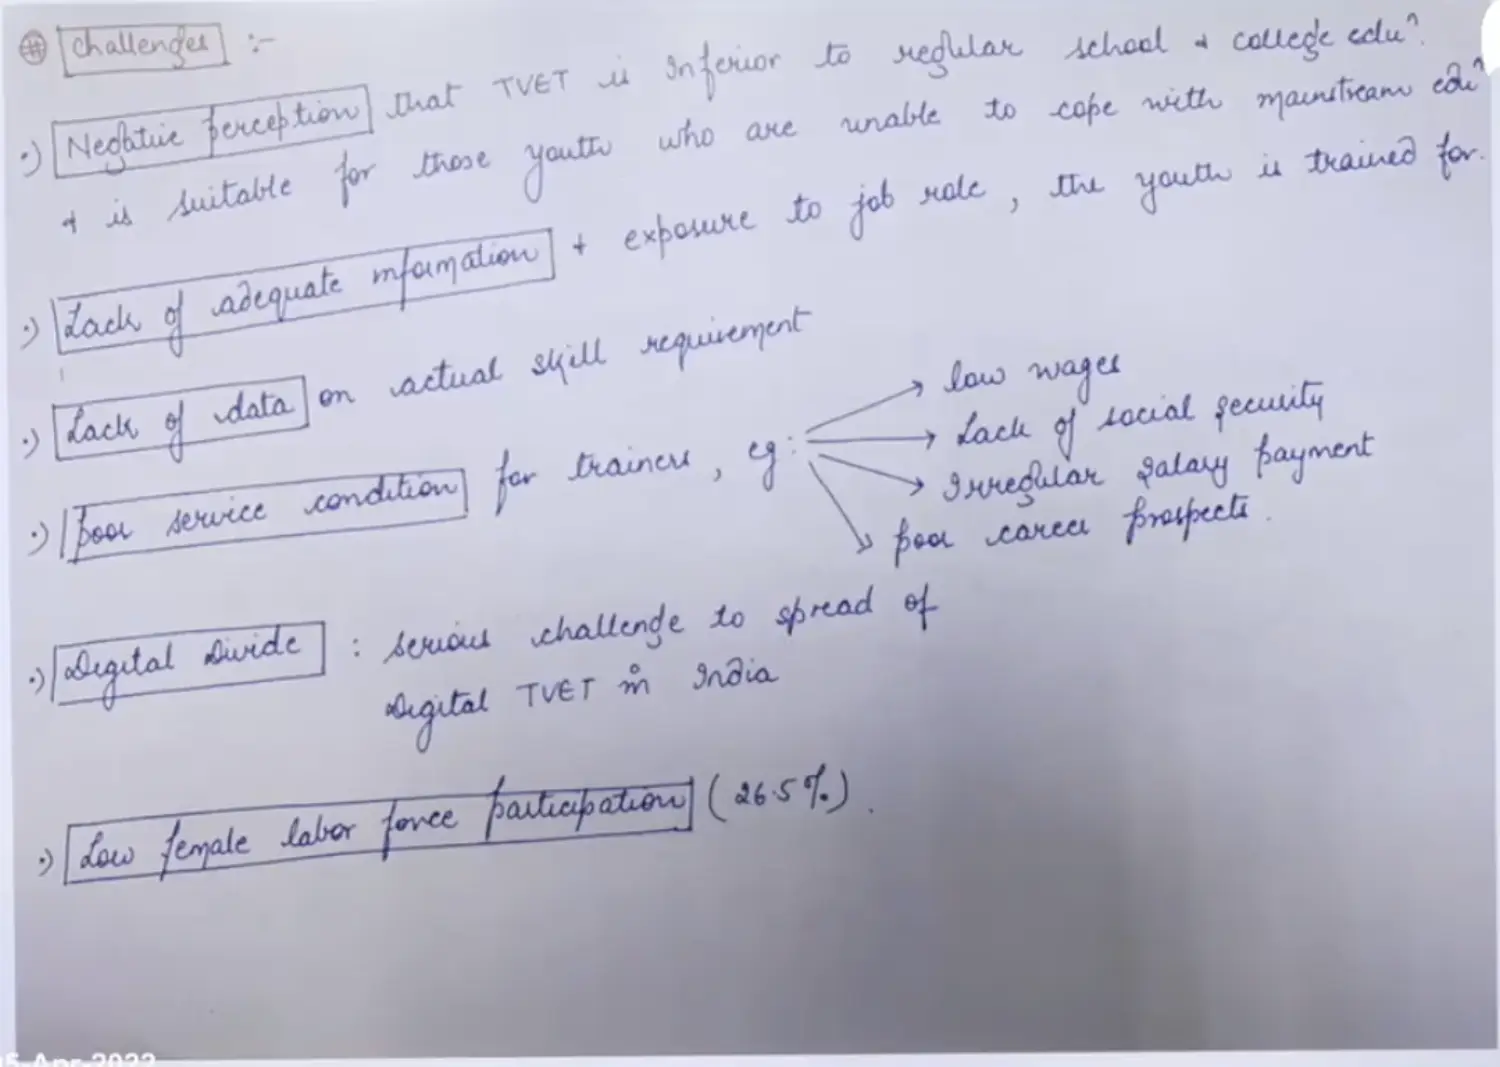 # Challenges :-
·) Negative perception that TVET is Inferior to regular school & college eduⁿ.
& is suitable for those youth who are unable to cope with mainstream eduⁿ
·) Lack of adequate information & exposure to job role, the youth is trained for.
·) Lack of data on actual skill requirement
·) Poor service condition for trainers, eg:
low wages
Lack of social security
Irregular salary payment
poor career prospects.
·) Digital Divide : serious challenge to spread of
Digital TVET in India
·) Low female labor force participation (26.5%).
5-Apr-2022